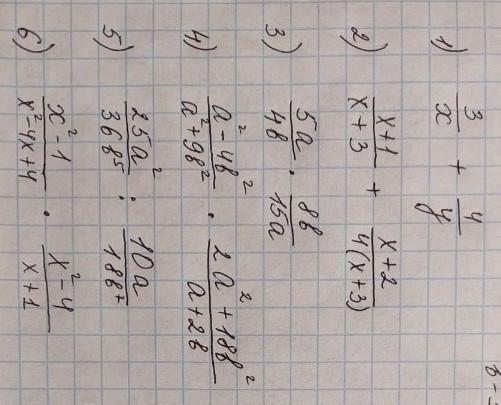 1) 3/x + 4/y
2) x+1/x+3 + x+2/4(x+3)
3) 5a/4b · 8b/15a
4) a²-4b²/a²+9b² · 2a²+18b²/a+2b
5) 25a²/36b⁵ : 10a/18b⁷
6) x²-1/x²-4x+4 · x²-4/x+1